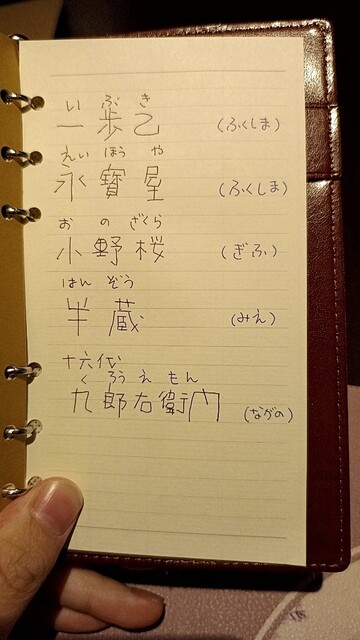 い ぶ き
一歩己 (ふくしま)
えい ほう や
永寶屋 (ふくしま)
お の ざくら
小野桜 (ぎふ)
はん ぞう
半蔵 (みえ)
十六代
く ろう え もん
九郎右衛門 (ながの)